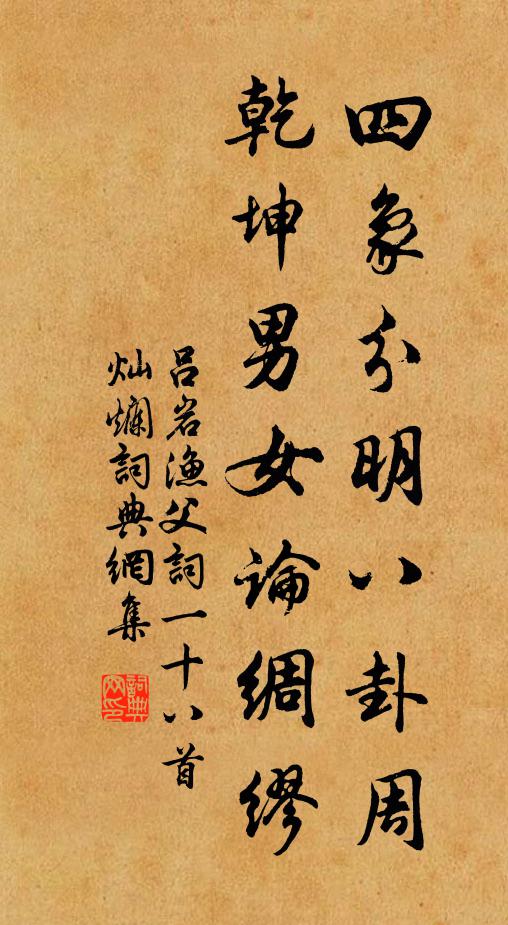 四象分明八卦周
乾坤男女論綢繆
吕岩漁父詞一十八首
灿爛詞典網集
詞典
网印